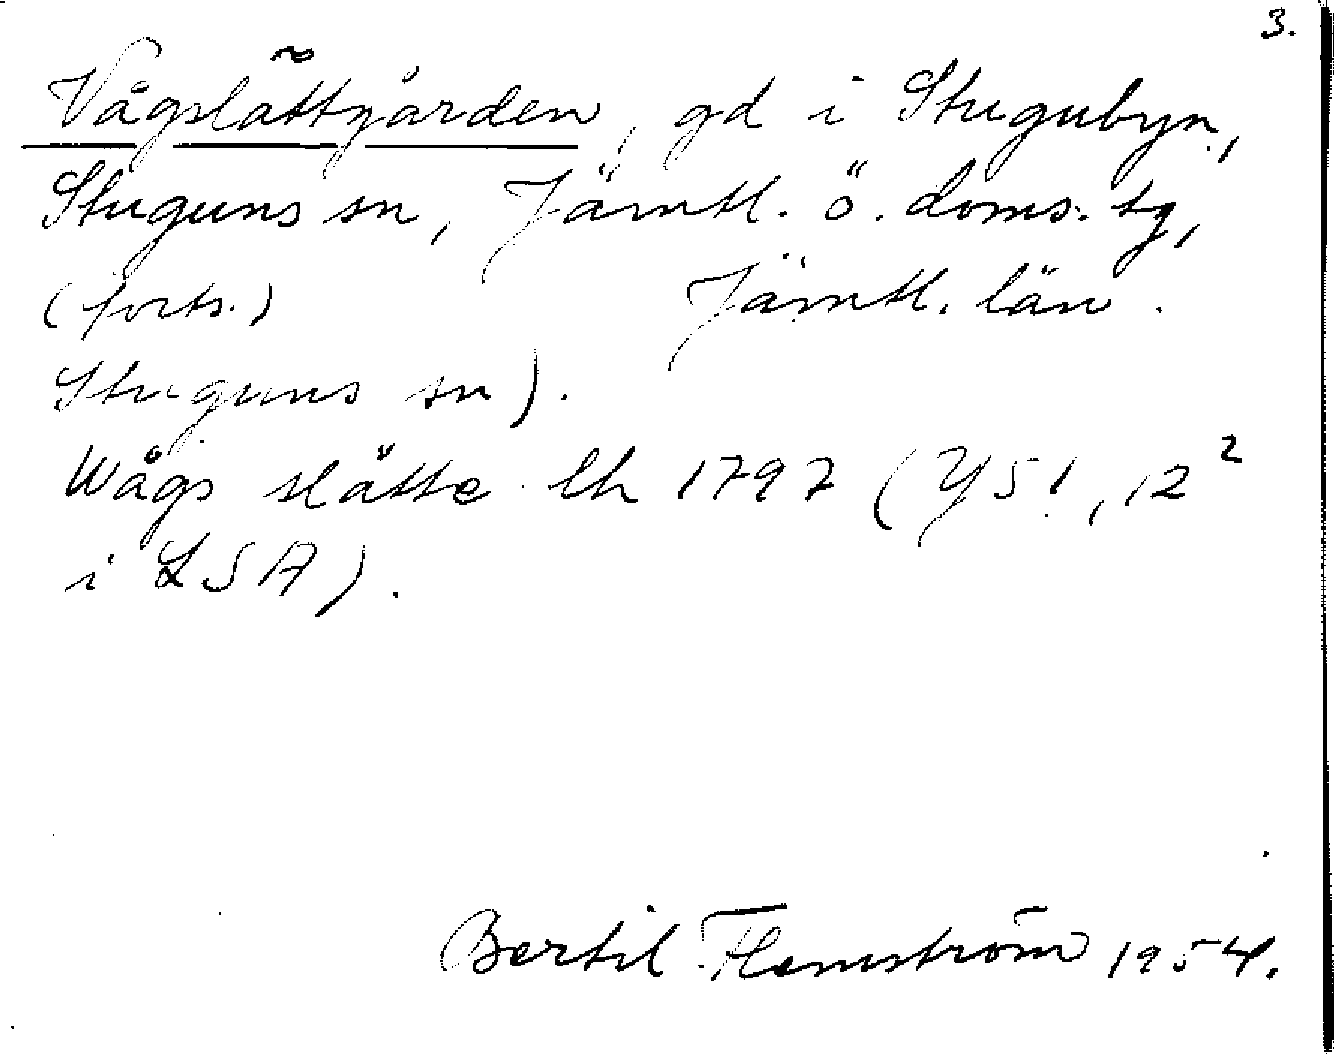 3.
Vågslåttgården, gd i Stugubyn,
Stuguns sn, Jämtl. ö. doms. tg,
(forts.) Jämtl. län.
Stuguns sn).
Wågs slåtte lh 1797 (Y51, 12²
i LSA).
Bertil Flemström 1954.